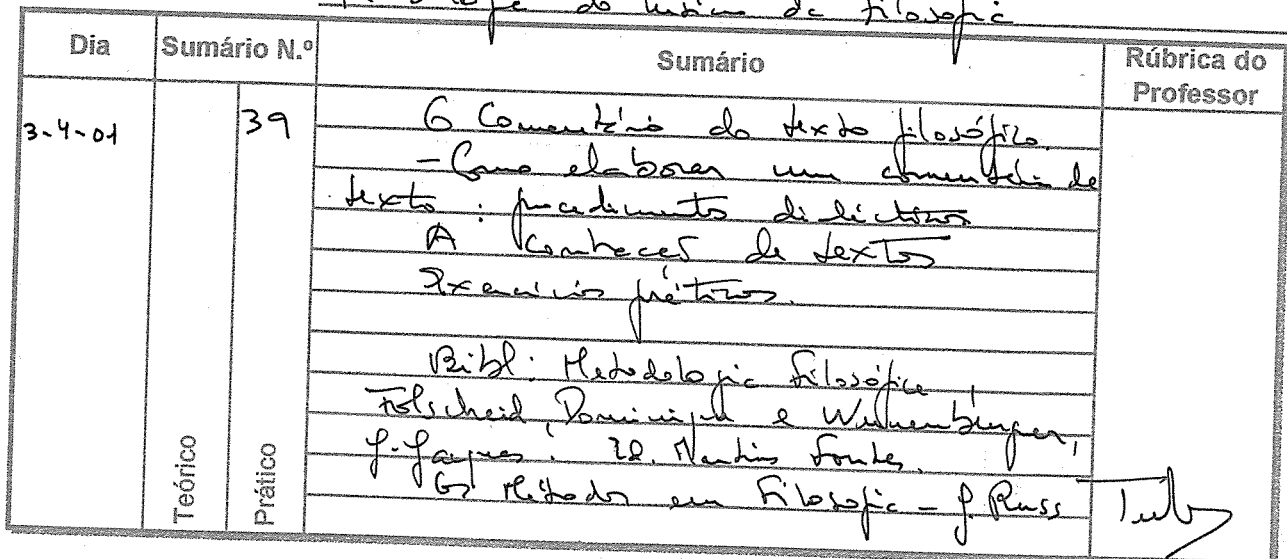 do da Filosofia
Dia Sumário N.º Sumário Rúbrica do Professor
3-4-01 39 O Comentário do texto filosófico.
- Como elaborar um comentário de
texto: procedimentos didácticos
A de textos
Exercícios práticos.
Bibl: Metodologia Filosófica,
Folscheid, Dominique e Wunenburger,
J. Jaques. Ed. Martins Fontes.
Os Métodos em Filosofia - J. Russ
Teórico
Prático